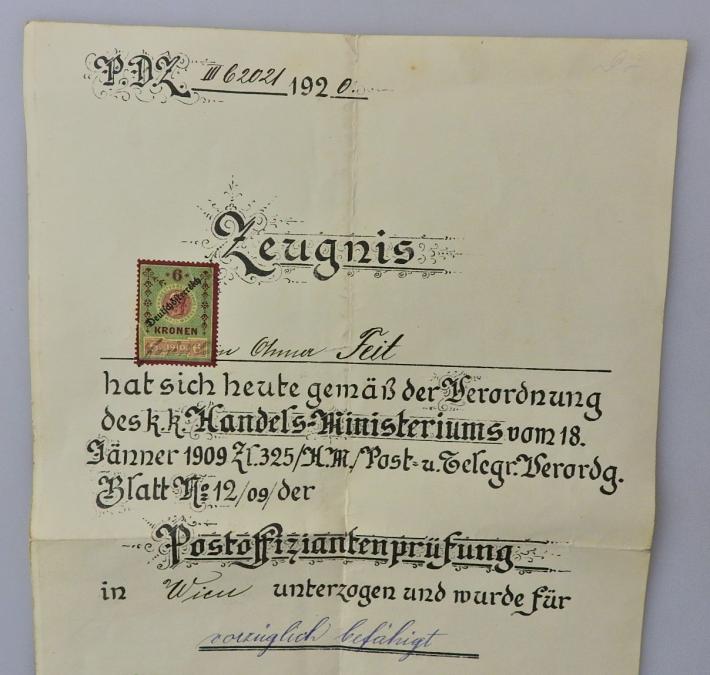 P.D.Z. III 62021 1920.
Zeugnis
6
Deutschösterreich
KRONEN
1910
Feit
hat sich heute gemäß der Verordnung
des k.k. Handels-Ministeriums vom 18.
Jänner 1909 Zl. 325/H.M./Post- u. Telegr. Verordg.
Blatt No 12/09/ der
Postoffiziantenprüfung
in Wien unterzogen und wurde für
vorzüglich befähigt